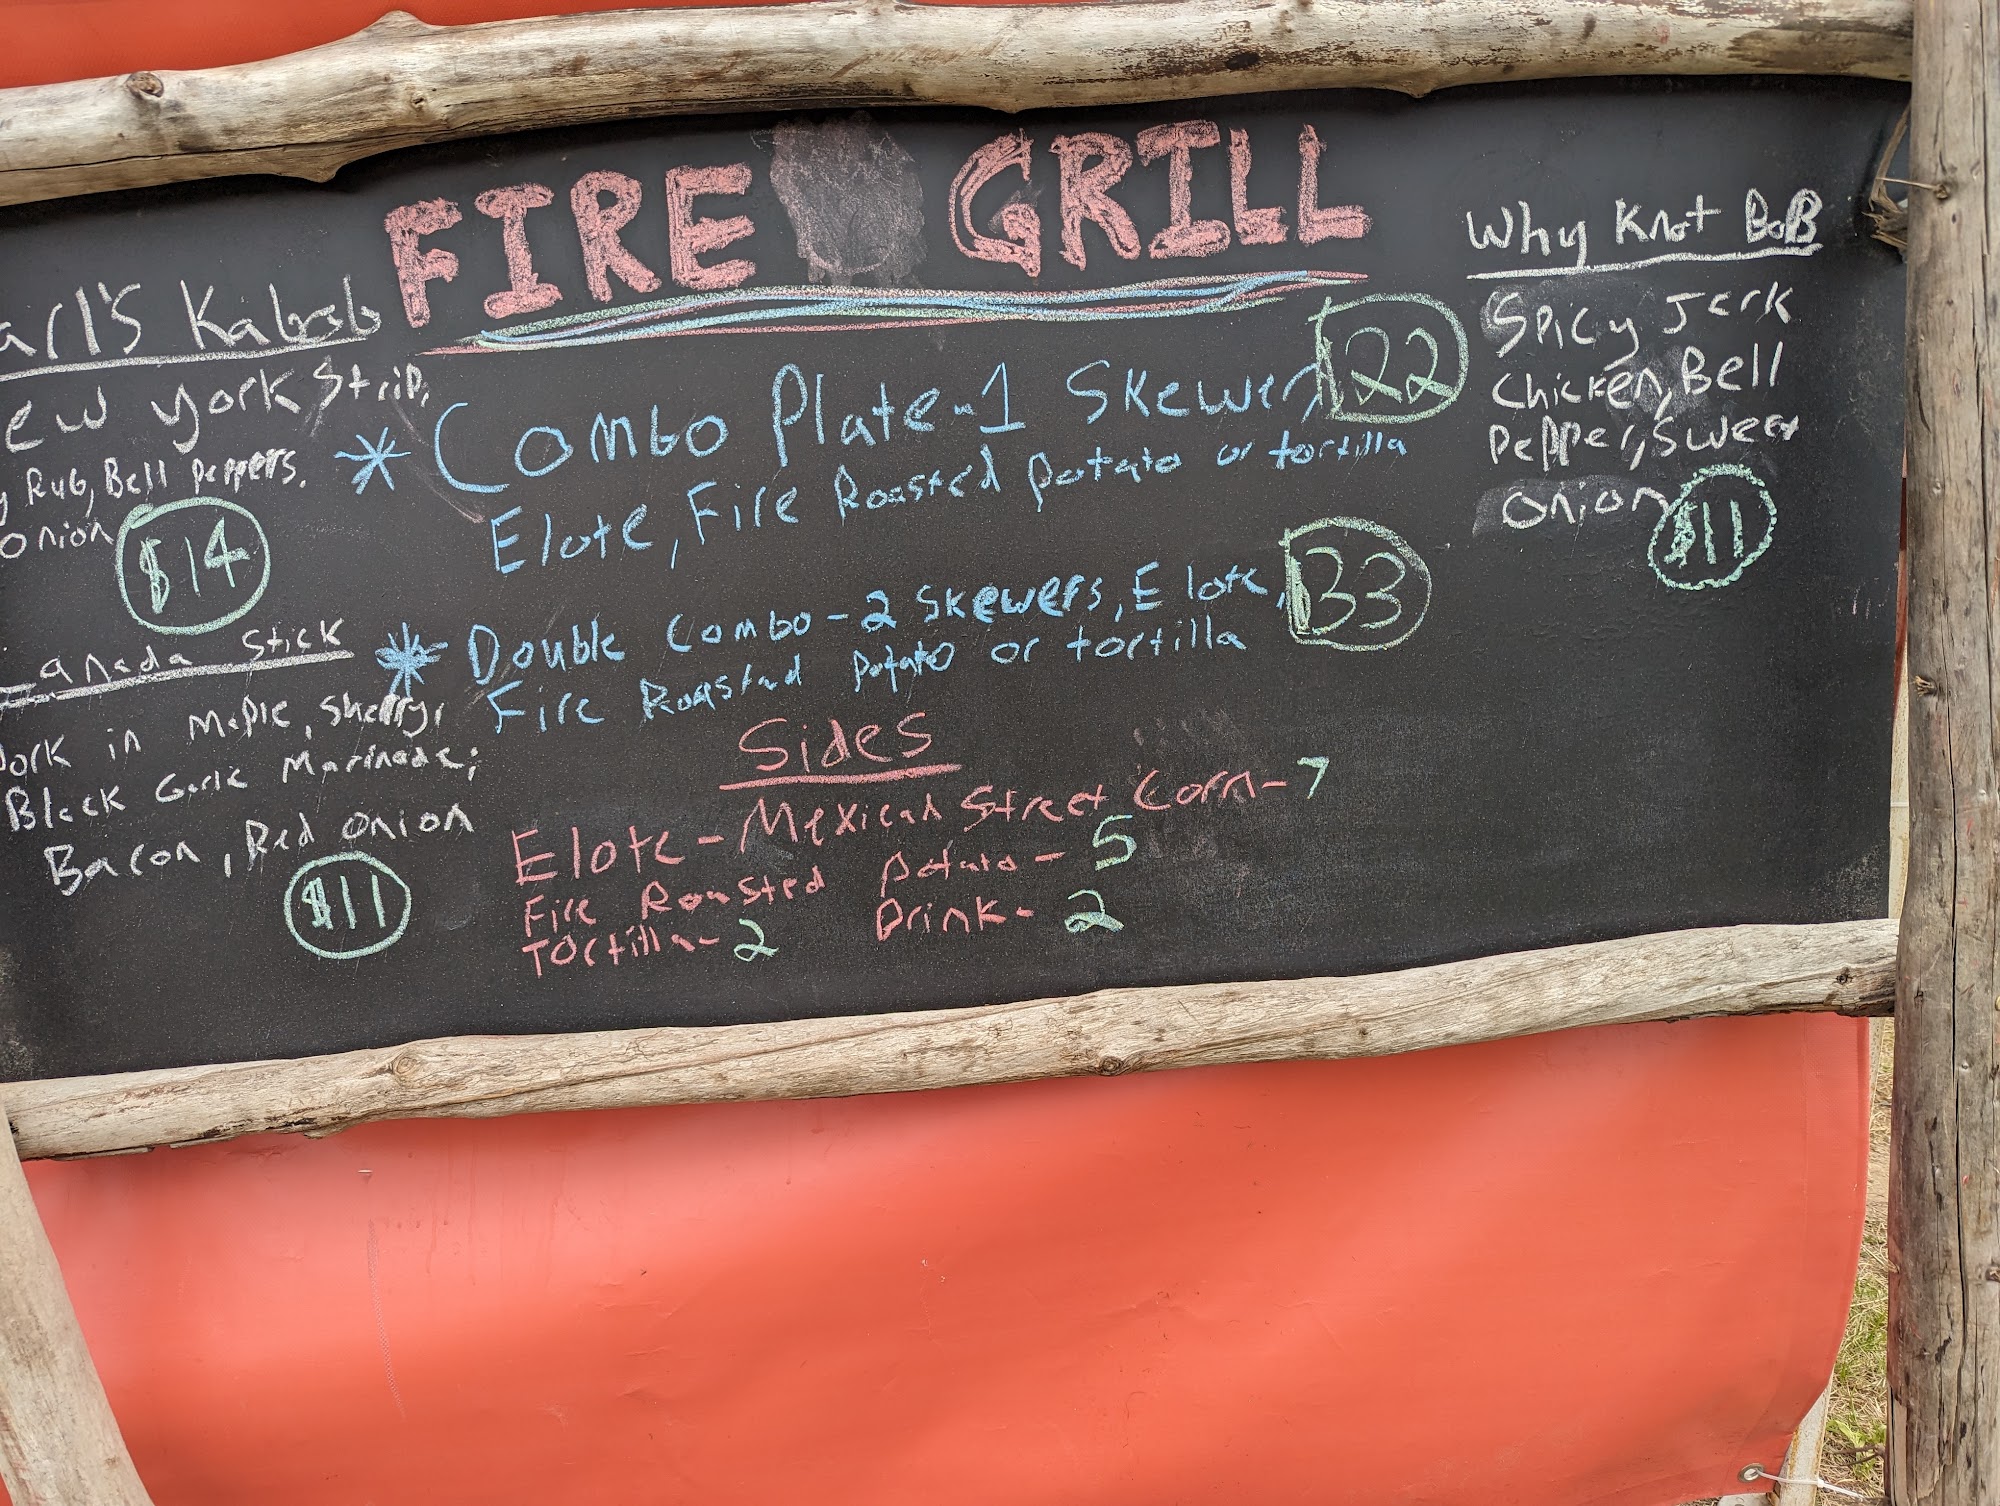 FIRE GRILL
arl's Kabob
ew York Strip,
y Rub, Bell Peppers.
onion $14
anada Stick
ork in Maple, Sherry,
Black Garlic Marinade;
Bacon, Red Onion
$11
* Combo Plate-1 Skewer, 22
Elote, Fire Roasted potato or tortilla
* Double Combo-2 Skewers, Elote, 33
Fire Roasted potato or tortilla
Sides
Elote-Mexican Street Corn-7
Fire Roasted potato-5
Tortilla-2 Drink-2
Why Knot BoB
Spicy Jerk
Chicken, Bell
Pepper, Sweet
Onion $11